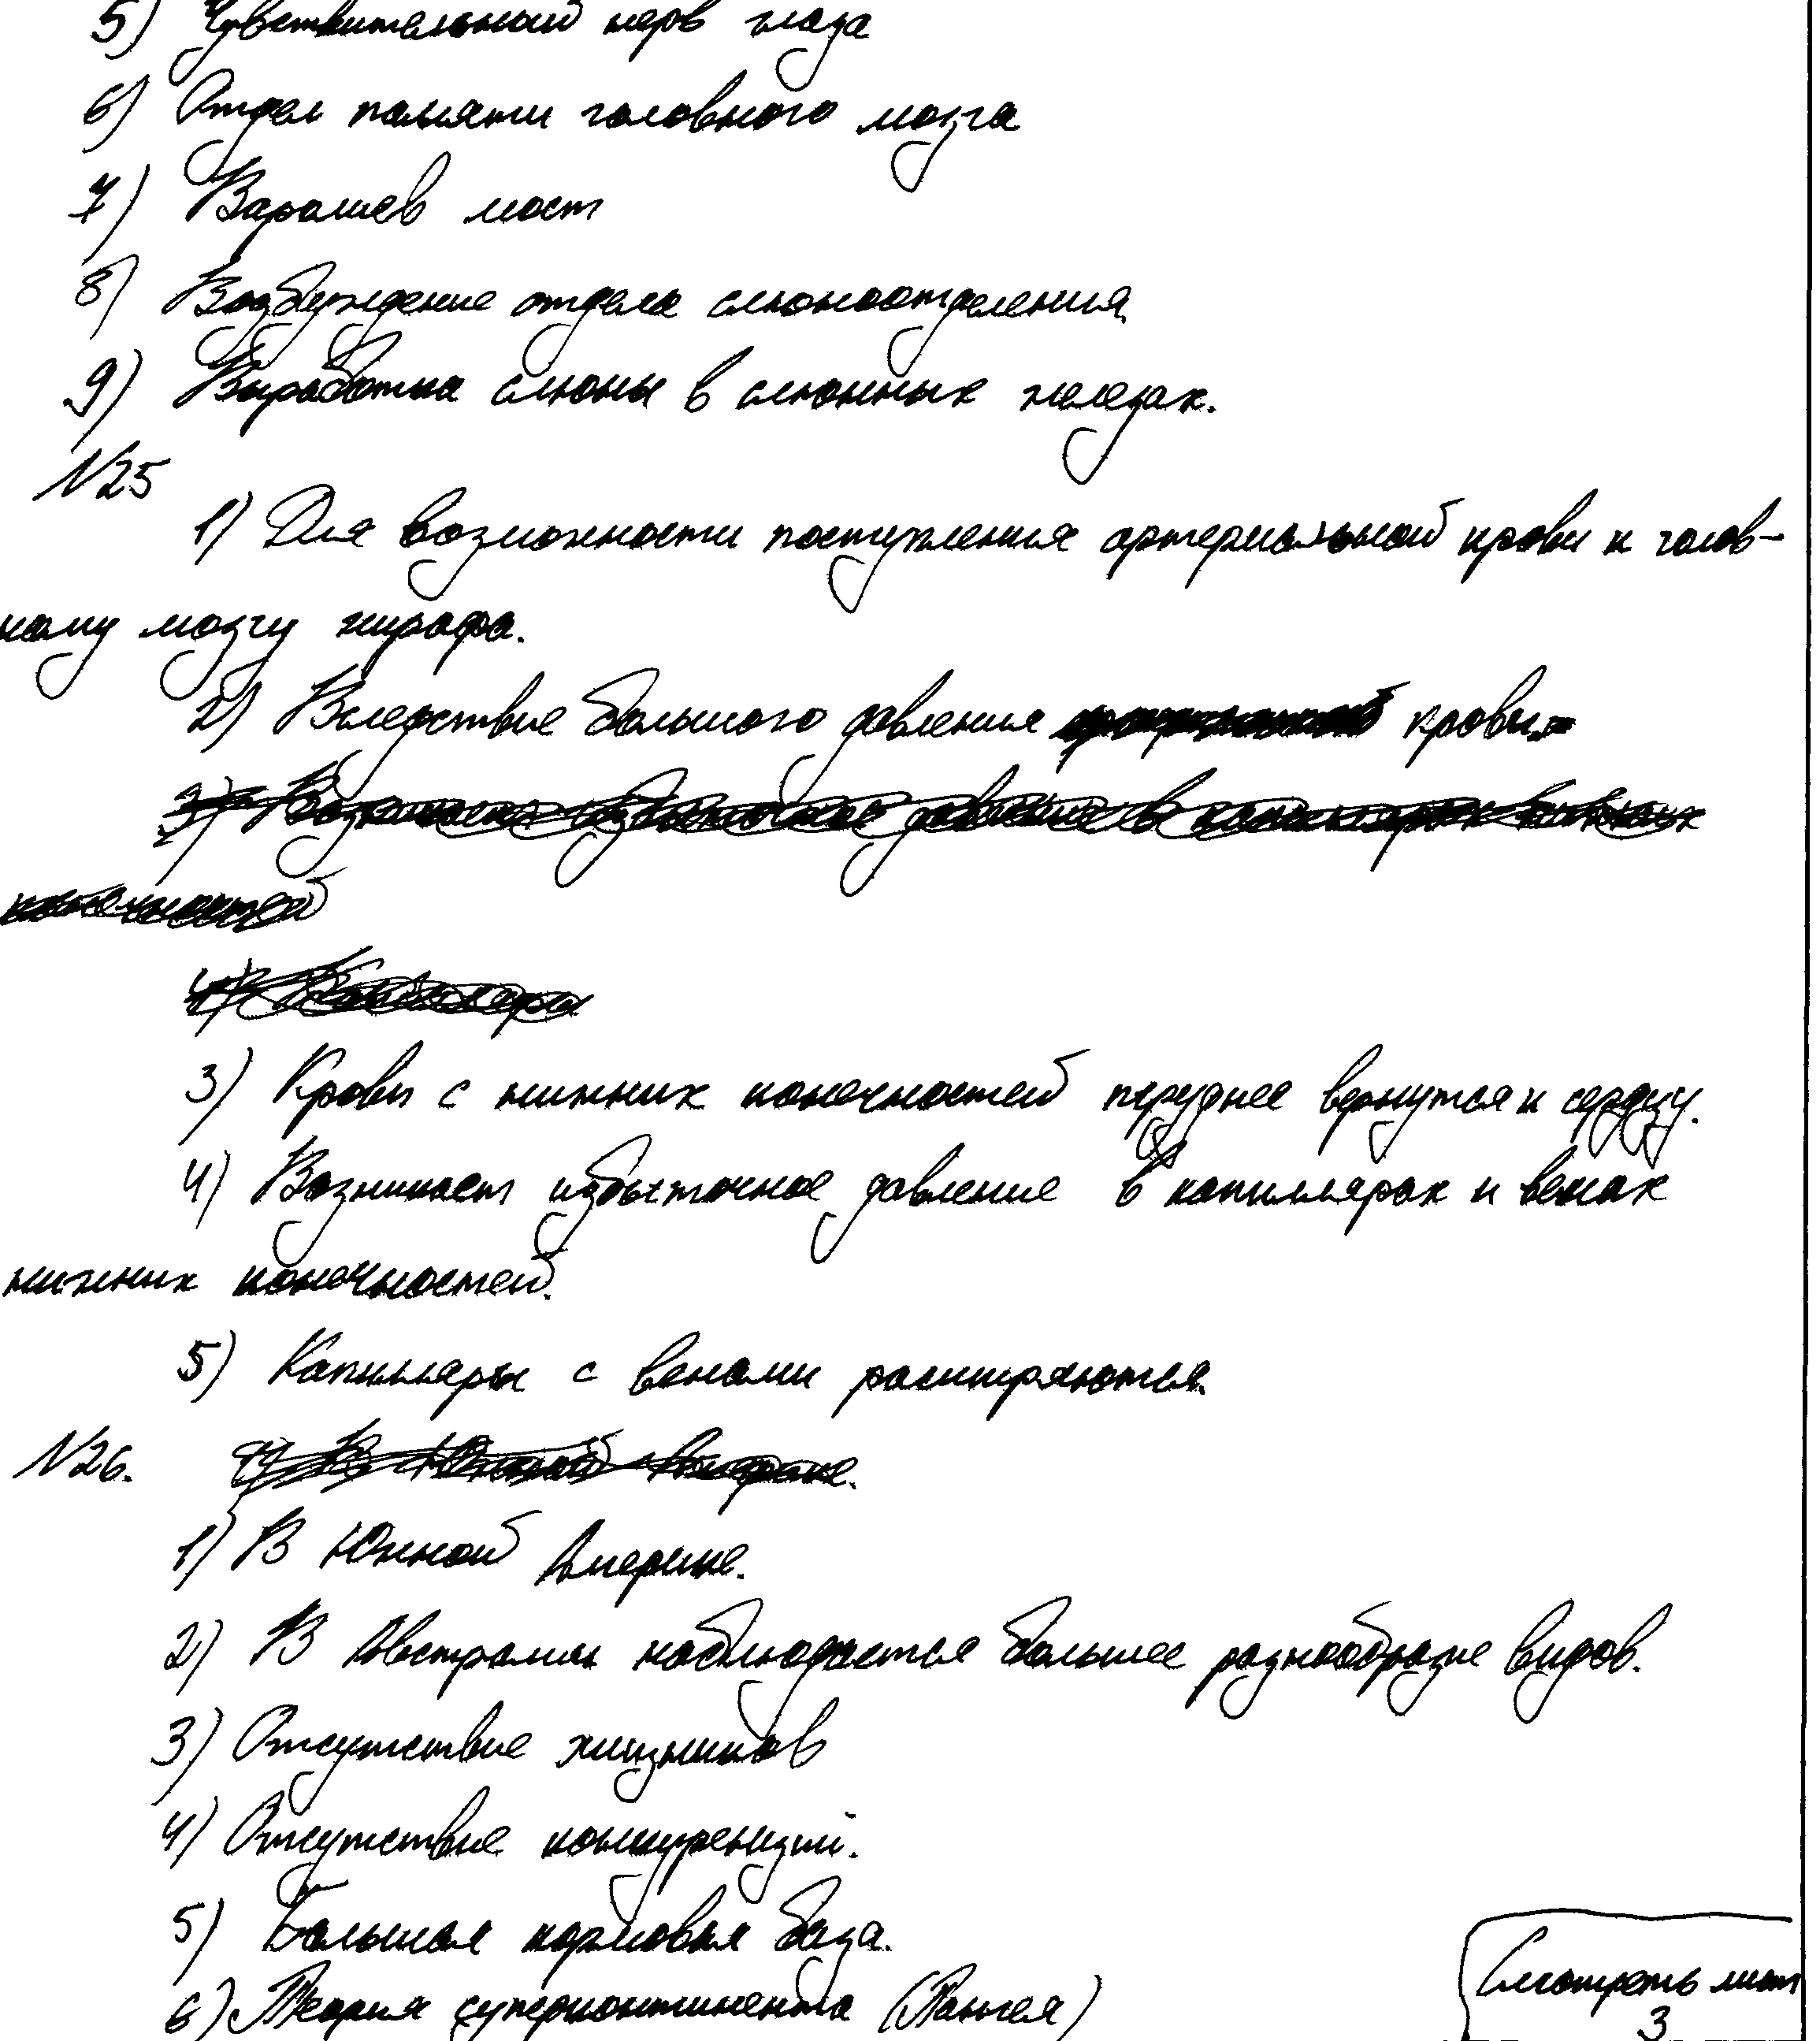 5) Чувствительный нерв глаза
6) Отдел памяти головного мозга
7) Варолиев мост
8) Возбуждение отдела слюноотделения
9) Выработка слюны в слюнных железах.
N25
1) Для возможности поступления артериальной крови к голов-
ному мозгу жирафа.
2) Вследствие большого давления крови.
3) Возникает избыточное давление в капиллярах нижних
конечностей
4) Капилляры
3) Крови с нижних конечностей труднее вернуться к сердцу.
4) Возникает избыточное давление в капиллярах и венах
нижних конечностей.
5) Капилляры с венами расширяются.
N26. 1) В Южной Америке.
1) В Южной Америке.
2) В Австралии наблюдается большее разнообразие видов.
3) Отсутствие хищников
4) Отсутствие конкуренций.
5) Большая кормовая база.
6) Теория суперконтинента (Пангея)
Смотреть лист
3